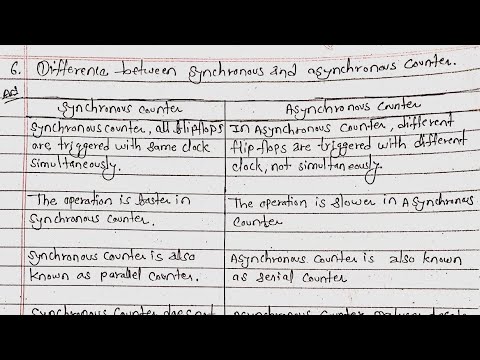 6. Difference between synchronous and asynchronous counter.
Ans
Synchronous counter
Asynchronous counter
Synchronous counter, all flipflops
are triggered with same clock
simultaneously.
In Asynchronous counter, different
flip-flops are triggered with different
clock, not simultaneously.
The operation is faster in
synchronous counter.
The operation is slower in Asynchronous
counter
Synchronous counter is also
known as parallel counter.
Asynchronous counter is also known
as serial counter
Synchronous counter does not
Asynchronous counter